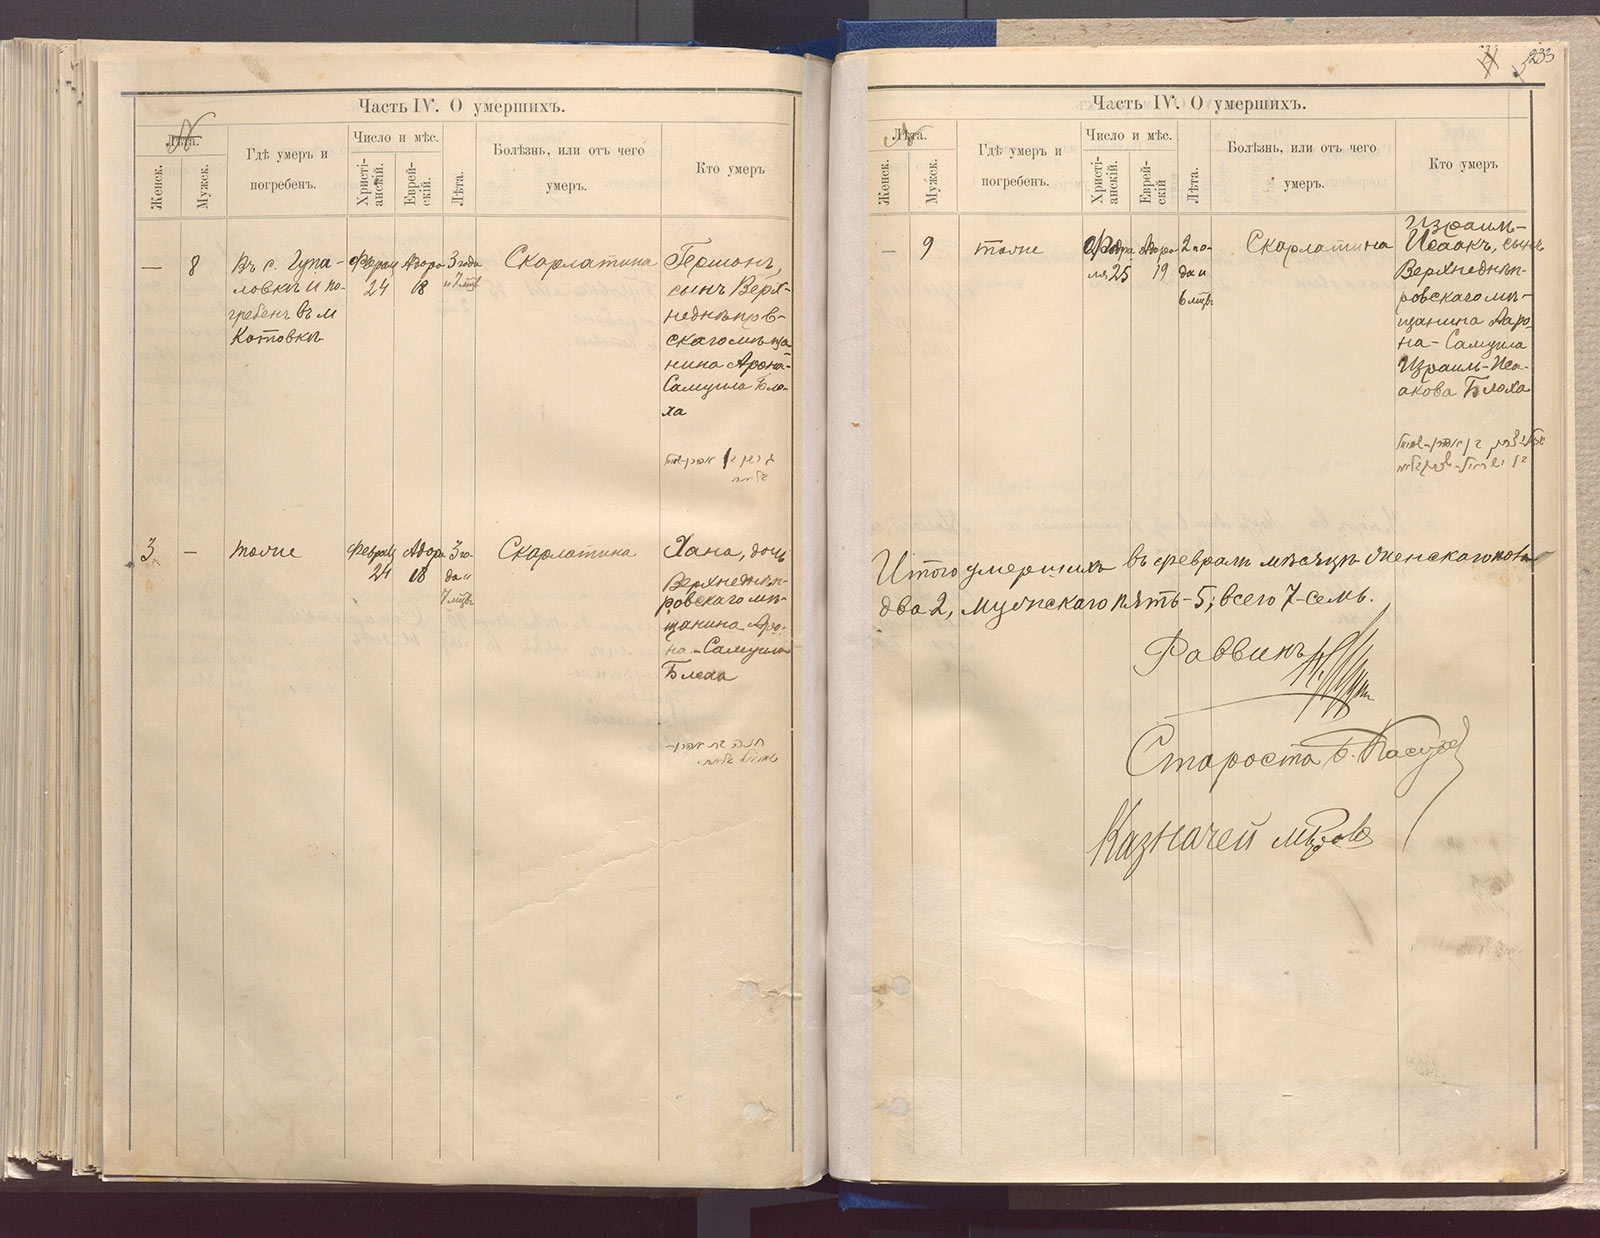 Часть IV. О умершихъ.
Лѣта.
Женск.
Мужск.
Гдѣ умеръ и
погребенъ.
Число и мѣс.
Христі-
анскій.
Еврей-
скій.
Лѣта.
Болѣзнь, или отъ чего
умеръ.
Кто умеръ
—
8
Въ с. Гупа-
ловкѣ и по-
гребенъ въ м
Котовкѣ
24
Адара
18
3 года
и 7 мцъ
Скарлатина
Гершонъ,
сынъ Верх-
неднѣпров-
скаго мѣща
нина Арона-
Самуила Бло-
ха
3
—
тоже
Февраля
24
Адара
18
3 го-
да и
7 мцъ
Скарлатина
Хана, дочь
Верхнеднѣп-
ровскаго мѣ-
щанина Аро-
на-Самуила
Блоха
חנה בת אהרן-
233
Часть IV. О умершихъ.
Лѣта.
Женск.
Мужск.
Гдѣ умеръ и
погребенъ.
Число и мѣс.
Христі-
анскій.
Еврей-
скій
Лѣта.
Болѣзнь, или отъ чего
умеръ.
Кто умеръ
—
9
тоже
Февра
ля 25
Адара
19
2 го-
да и
6 мцъ
Скарлатина
Израиль-
Исаакъ, сынъ
Верхнеднѣп-
ровскаго мѣ-
щанина Ааро-
на-Самуила
Израиль-Иса-
акова Блоха
Итого умершихъ въ февралѣ мѣсяцѣ женскаго пола
два 2, мужскаго пять-5; всего 7-семь.
Раввинъ
Староста
Казначей